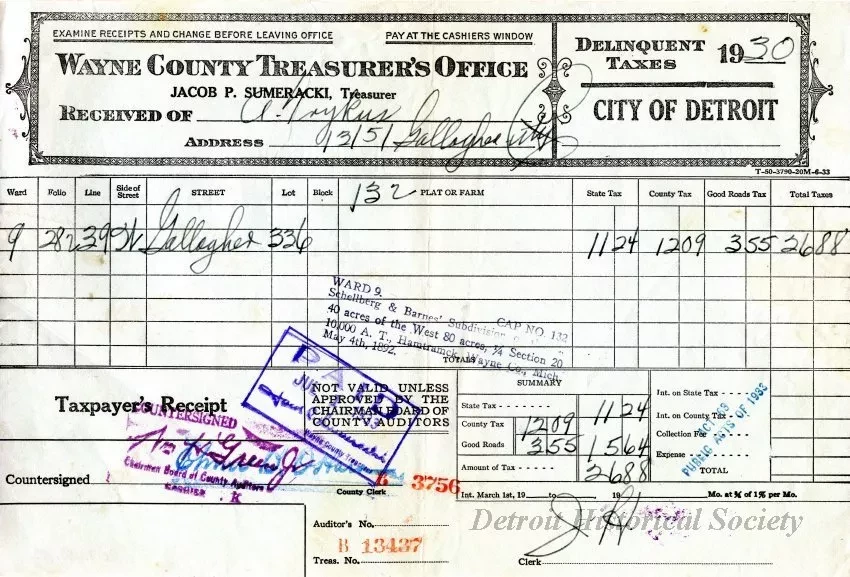 EXAMINE RECEIPTS AND CHANGE BEFORE LEAVING OFFICE PAY AT THE CASHIERS WINDOW
WAYNE COUNTY TREASURER'S OFFICE
JACOB P. SUMERACKI, Treasurer
RECEIVED OF
ADDRESS 13151 Gallagher
DELINQUENT TAXES 1930
CITY OF DETROIT
T-50-3790-20M-6-33
Ward Folio Line Side of Street STREET Lot Block 132 PLAT OR FARM State Tax County Tax Good Roads Tax Total Taxes
9 282 39 W Gallagher 336 11 24 12 09 3 55 26 88
WARD 9. CAP NO. 132
Schellberg & Barnes' Subdivision
40 acres of the West 80 acres, ¼ Section 20
10,000 A. T., Hamtramck, Wayne Co., Mich.
May 4th, 1892.
TOTALS
PAID
Wayne County Treasurer
Taxpayer's Receipt
COUNTERSIGNED
Chairman Board of County Auditors
CASHIER K
Countersigned
County Clerk
B 3756
NOT VALID UNLESS
APPROVED BY THE
CHAIRMAN BOARD OF
COUNTY AUDITORS
SUMMARY
State Tax 11 24
County Tax 12 09
Good Roads 3 55 15 64
Amount of Tax 26 88
Int. March 1st, 19 to 19 Mo. at ¾ of 1% per Mo.
Int. on State Tax
Int. on County Tax
Collection Fee
Expense
TOTAL
PUBLIC ACTS OF 1933
Auditor's No.
B 13437
Treas. No.
Clerk
Detroit Historical Society